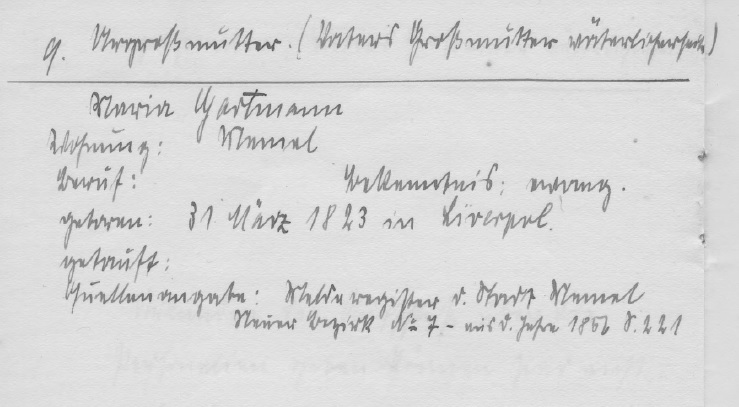 9. Urgroßmutter. (Vaters Großmutter väterlicherseits)
Maria Hartmann
Wohnung: Memel
Beruf: Bekenntnis: evang.
geboren: 31 März 1823 in Liverpol.
getauft:
Quellenangabe: Melderegister d. Stadt Memel
Neuer Bezirk No 7 - aus d. Jahre 1856 S. 221